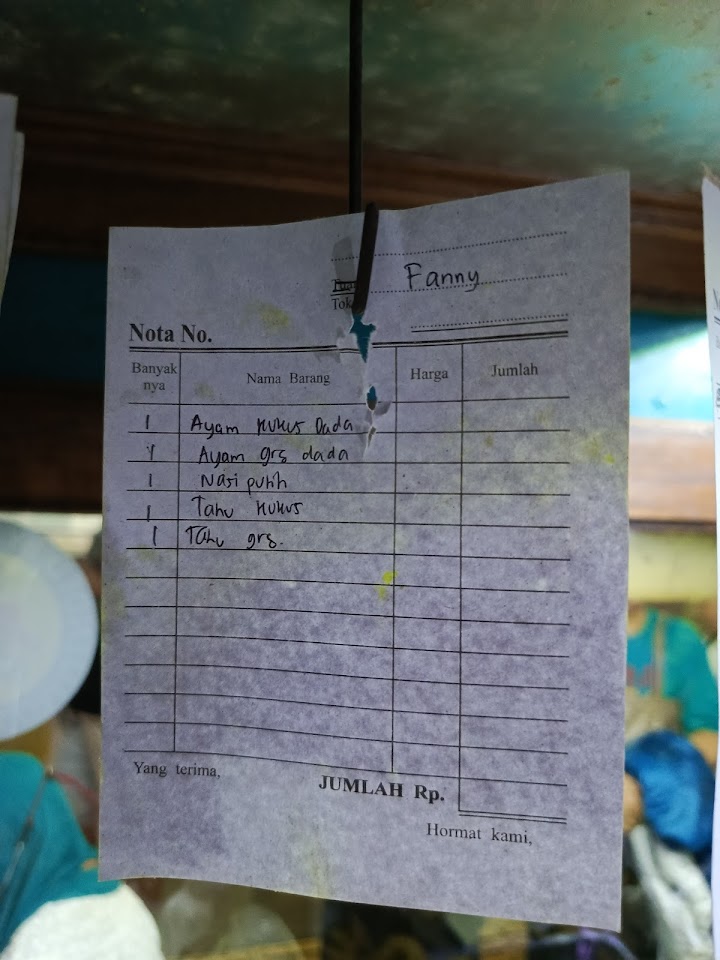 Fanny
Tok
Nota No.
Banyak nya Nama Barang Harga Jumlah
1 Ayam kukus Dada
1 Ayam grs dada
1 Nasi putih
1 Tahu kukus
1 Tahu grs.
Yang terima,
JUMLAH Rp.
Hormat kami,